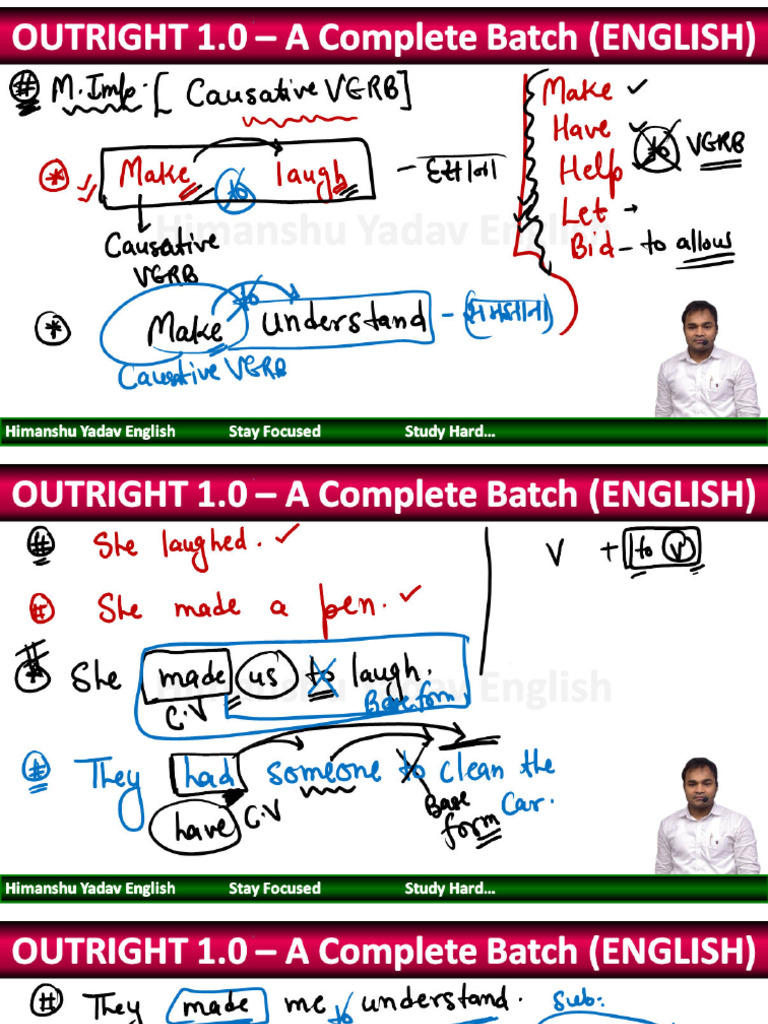 OUTRIGHT 1.0 – A Complete Batch (ENGLISH)
# M.Imp. [Causative VERB]
* Make to laugh – हसाना
Causative
VERB
Make
Have
Help
Let
Bid – to allow
to VERB
Himanshu Yadav English
* Make to understand – समझाना
Causative VERB
Himanshu Yadav English Stay Focused Study Hard...
OUTRIGHT 1.0 – A Complete Batch (ENGLISH)
# She laughed.
V + to V
# She made a pen.
* She made us to laugh.
C.V Base form.
Himanshu Yadav English
* They had someone to clean the
car.
have C.V
Base
form
Himanshu Yadav English Stay Focused Study Hard...
OUTRIGHT 1.0 – A Complete Batch (ENGLISH)
# They made me to understand. Sub: